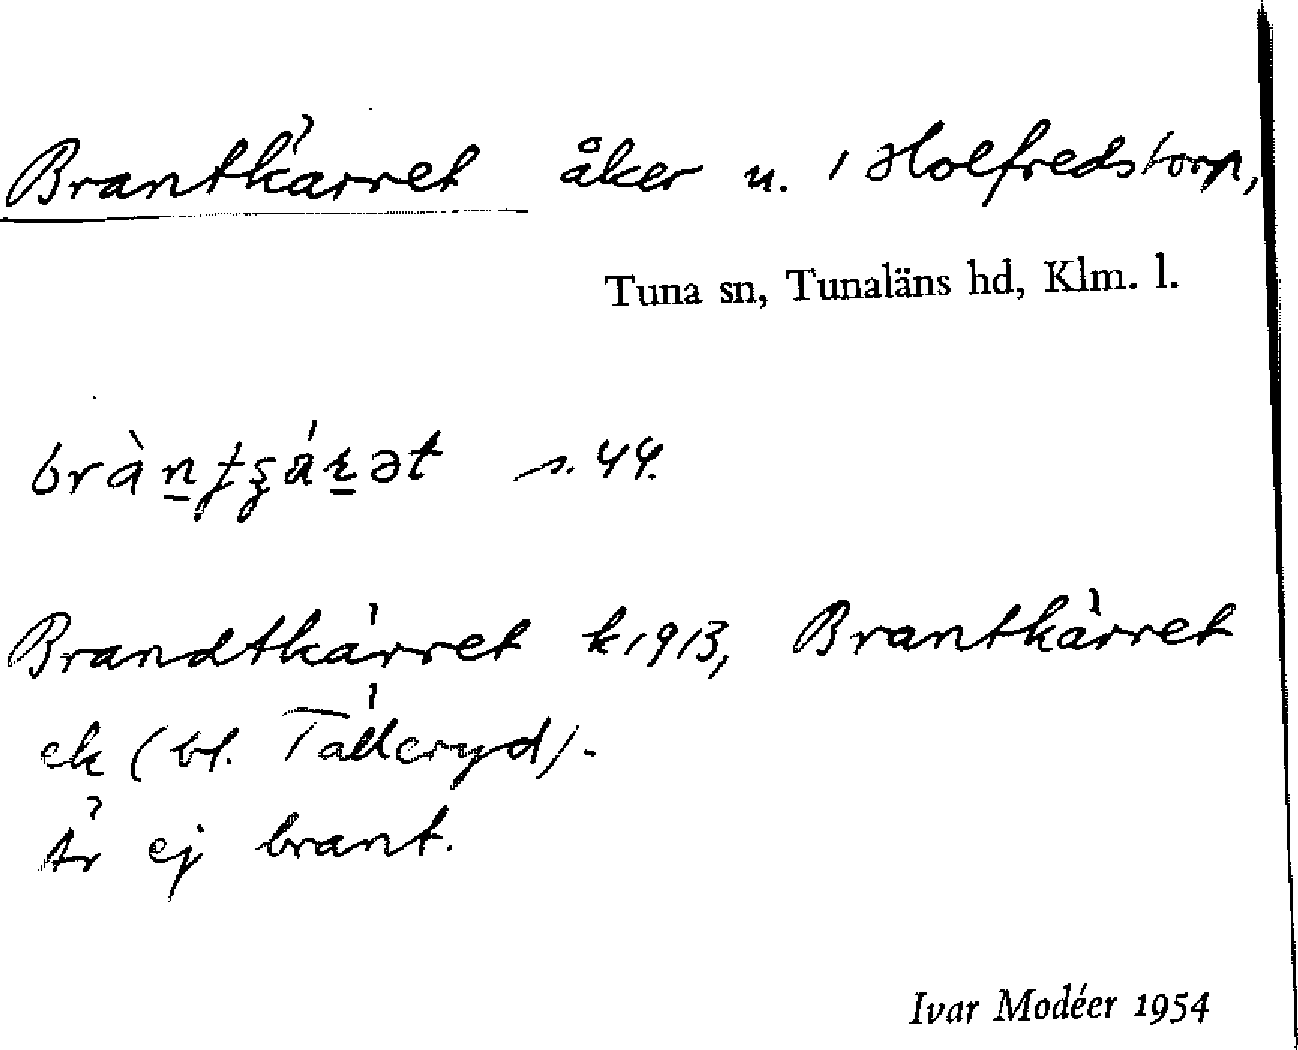 Brantkärret åker u. 1 Holfredstorp,
Tuna sn, Tunaläns hd, Klm. l.
s. 44.
Brandtkärret k 1913, Brantkärret
ek (bl. Tälleryd).
Är ej brant.
Ivar Modéer 1954